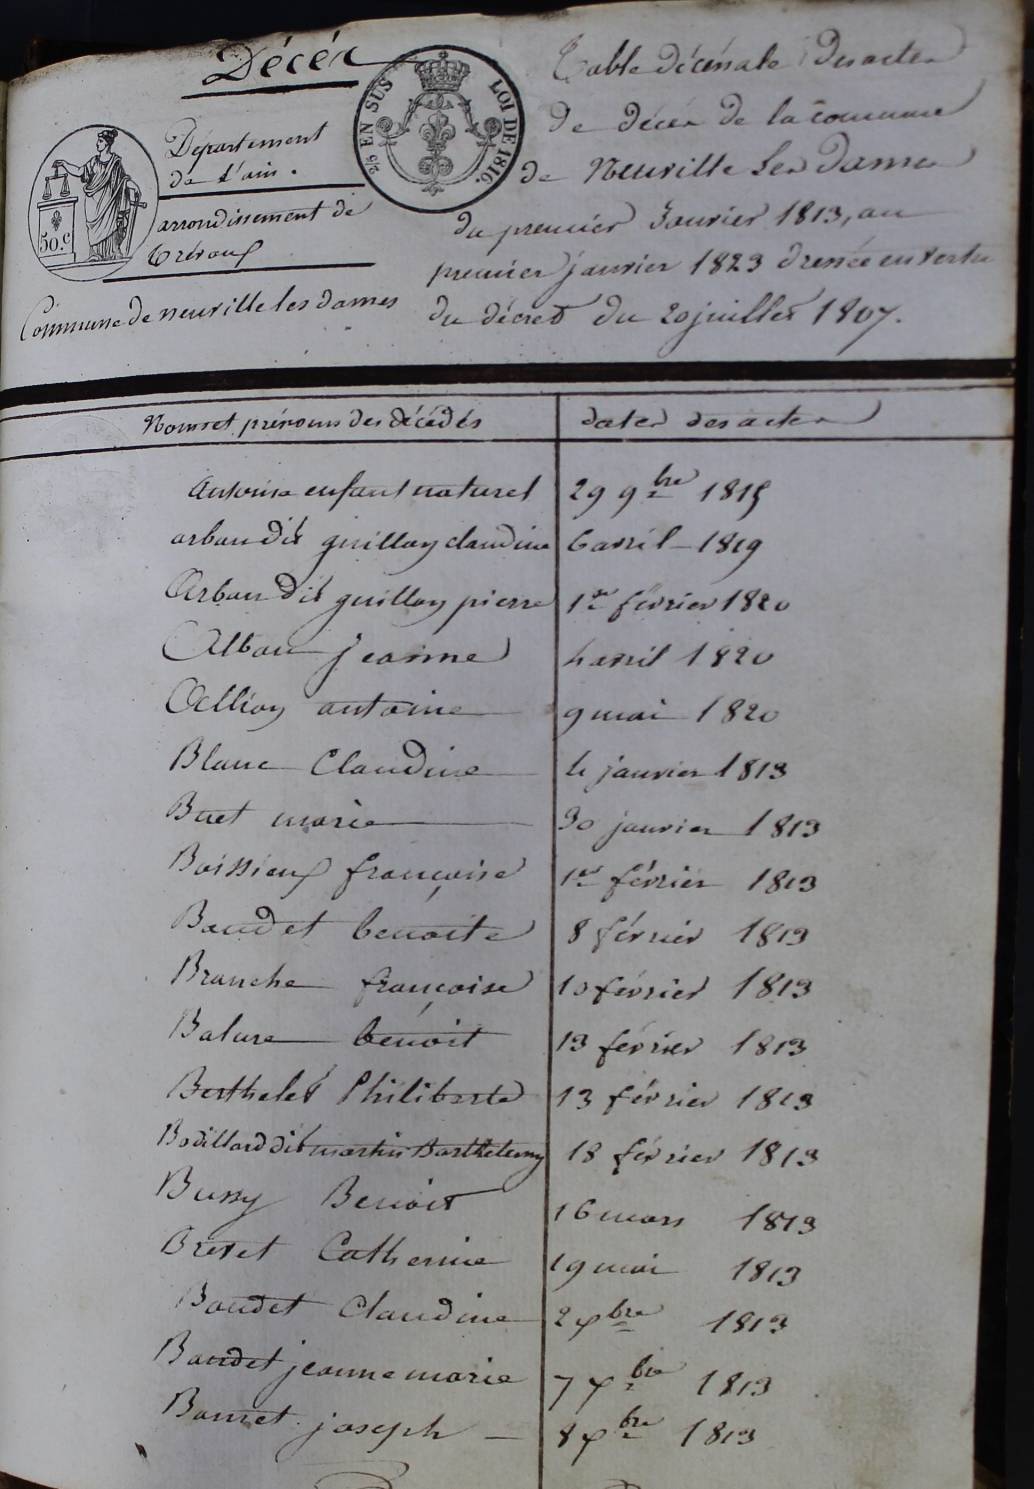 Décès
2/5 EN SUS LOI DE 1816.
50.c
Département
de l'ain.
arrondissement de
trévoux
Commune de neuville les dames
Table décénale des actes
de décès de la commune
de Neuville les Dames
du premier Janvier 1813, au
premier janvier 1823 dressée en vertu
du décret du 20 juillet 1807.
Noms et prénoms des décédés dates des actes
Antoine enfant naturel 29 9bre 1815
arban dit guillon claudine 6 avril 1819
Arban dit guillon pierre 1er février 1820
Alban jeanne 4 avril 1820
antoine 9 mai 1820
Blanc Claudine 4 janvier 1813
Buet marie 30 janvier 1813
Boissieux françoise 1er février 1813
Baudet benoite 8 février 1813
Branche françoise 10 février 1813
benoit 13 février 1813
Berthelet Philiberte 13 février 1813
Bodillard dit martin Barthelemy 18 février 1813
Bussy Benoit 16 mars 1813
Brevet Catherine 19 mai 1813
Baudet Claudine 2 1813
Baudet jeanne marie 7 1813
joseph 8 1813